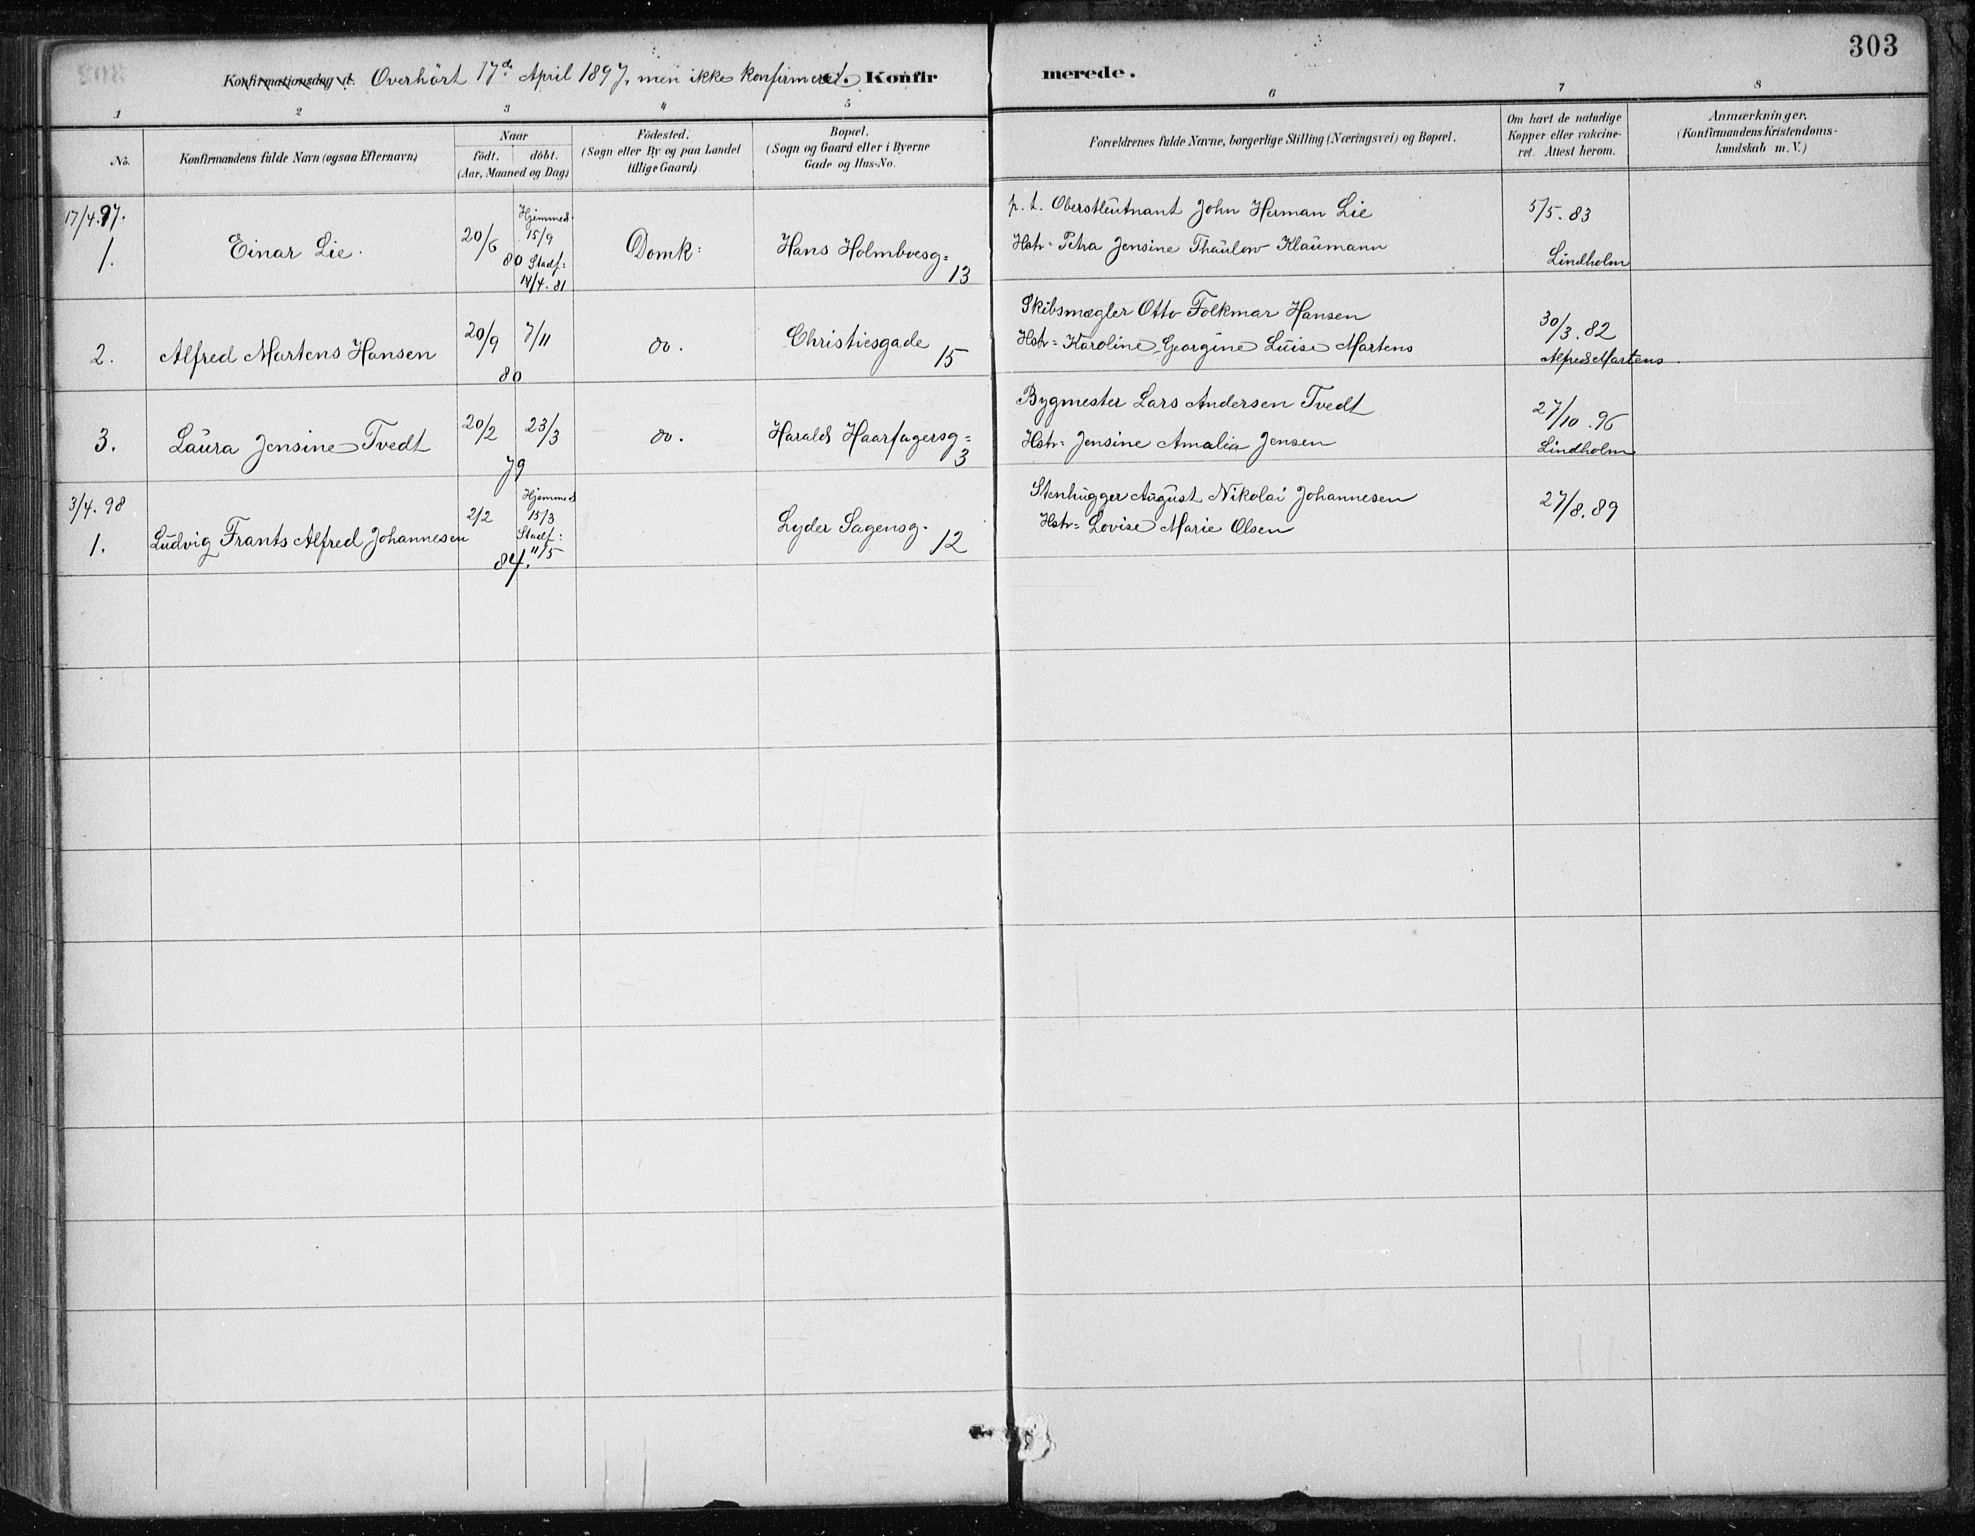 303
Konfirmationsdag d. Overhört 17de April 1897, men ikke konfirmeret. Konfirmerede.
1 2 3 4 5 6 7 8
No.
Konfirmandens fulde Navn (ogsaa Efternavn)
Naar
født. døbt.
(Aar, Maaned og Dag)
Fødested.
(Sogn eller By og paa Landet
tillige Gaard)
Bopæl.
(Sogn og Gaard eller i Byerne
Gade og Hus-No.
Forældrenes fulde Navne, borgerlige Stilling (Næringsvei) og Bopæl.
Om havt de naturlige
Kopper eller vakcine-
ret. Attest herom.
Anmærkninger.
(Konfirmandens Kristendoms-
kundskab m. V.)
17/4.97.
1.
Einar Lie.
20/6
80
Hjemmed:
15/9
Stadf:
14/4. 81
Domk:
Hans Holmboesg=
13
p. t. Oberstleutnant John Herman Lie
Hstr= Petra Jensine Thaulow Klaumann
5/5. 83
Lindholm
2.
Alfred Martens Hansen
20/9 7/11
80
do.
Christiesgade
15
Skibsmægler Otto Folkmar Hansen
Hstr= Karoline Georgine Luise Martens
30/3. 82
Alfred Martens.
3.
Laura Jensine Tvedt
20/2 23/3
79
do.
Harald Haarfagersg=
3
Bygmester Lars Andersen Tvedt
Hstr= Jensine Amalia Jensen
27/10. 96
Lindholm
3/4. 98
1.
Ludvig Frants Alfred Johannesen
2/2
Hjemmed
15/3
Stadf:
11/5
84.
Lyder Sagensg.
12
Stenhugger August Nikolai Johannesen
Hstr= Lovise Marie Olsen
27/8. 89